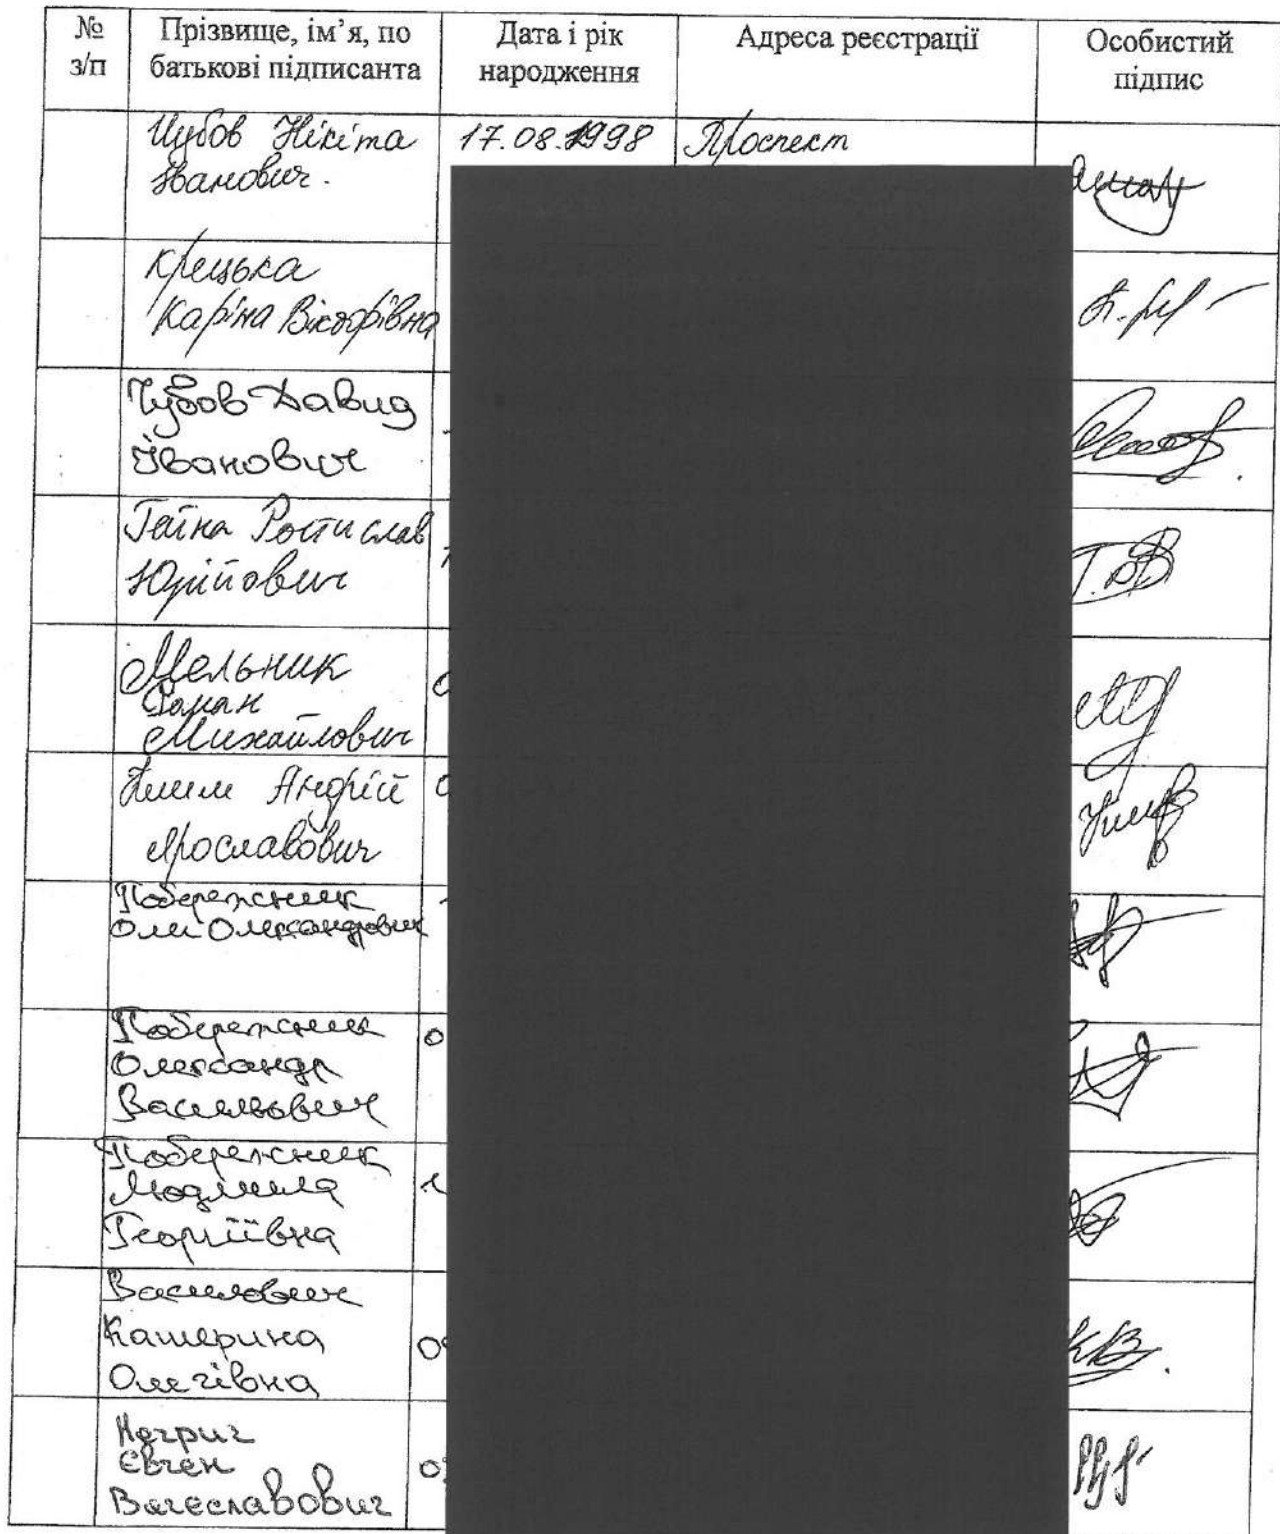 № з/п
Прізвище, ім’я, по батькові підписанта
Дата і рік народження
Адреса реєстрації
Особистий підпис
Чубов Нікіта
Іванович.
17.08.1998
Проспект
Крецька
Каріна Вікторівна
Чубов Давид
Іванович
Гаїна Ростислав
Юрійович
Мельник
Роман
Михайлович
Андрій
Ярославович
Побережник
Олександрович
Побережник
Олександр
Васильович
Побережник
Людмила
Георгіївна
Василович
Катерина
Олегівна
Євген
Вячеславович